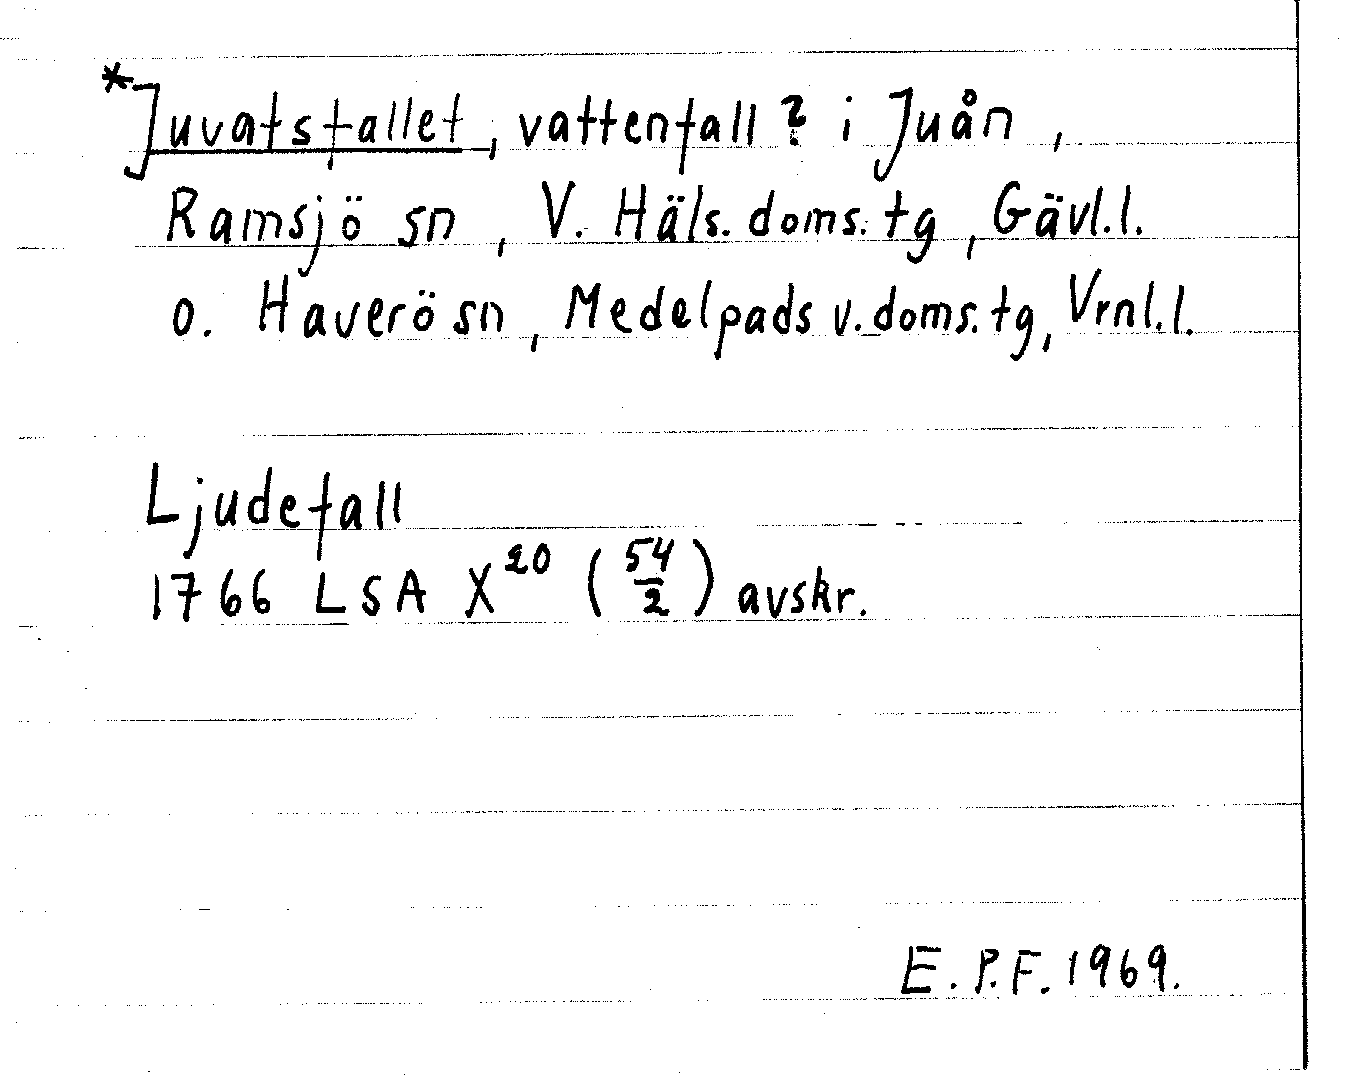 *Juvatsfallet, vattenfall? i Juån,
Ramsjö sn, V. Häls. doms. tg, Gävl.l.
o. Haverö sn, Medelpads v. doms. tg, Vrnl.l.
Ljudefall
1766 LSA X²⁰ (54/2) avskr.
E.P.F. 1969.